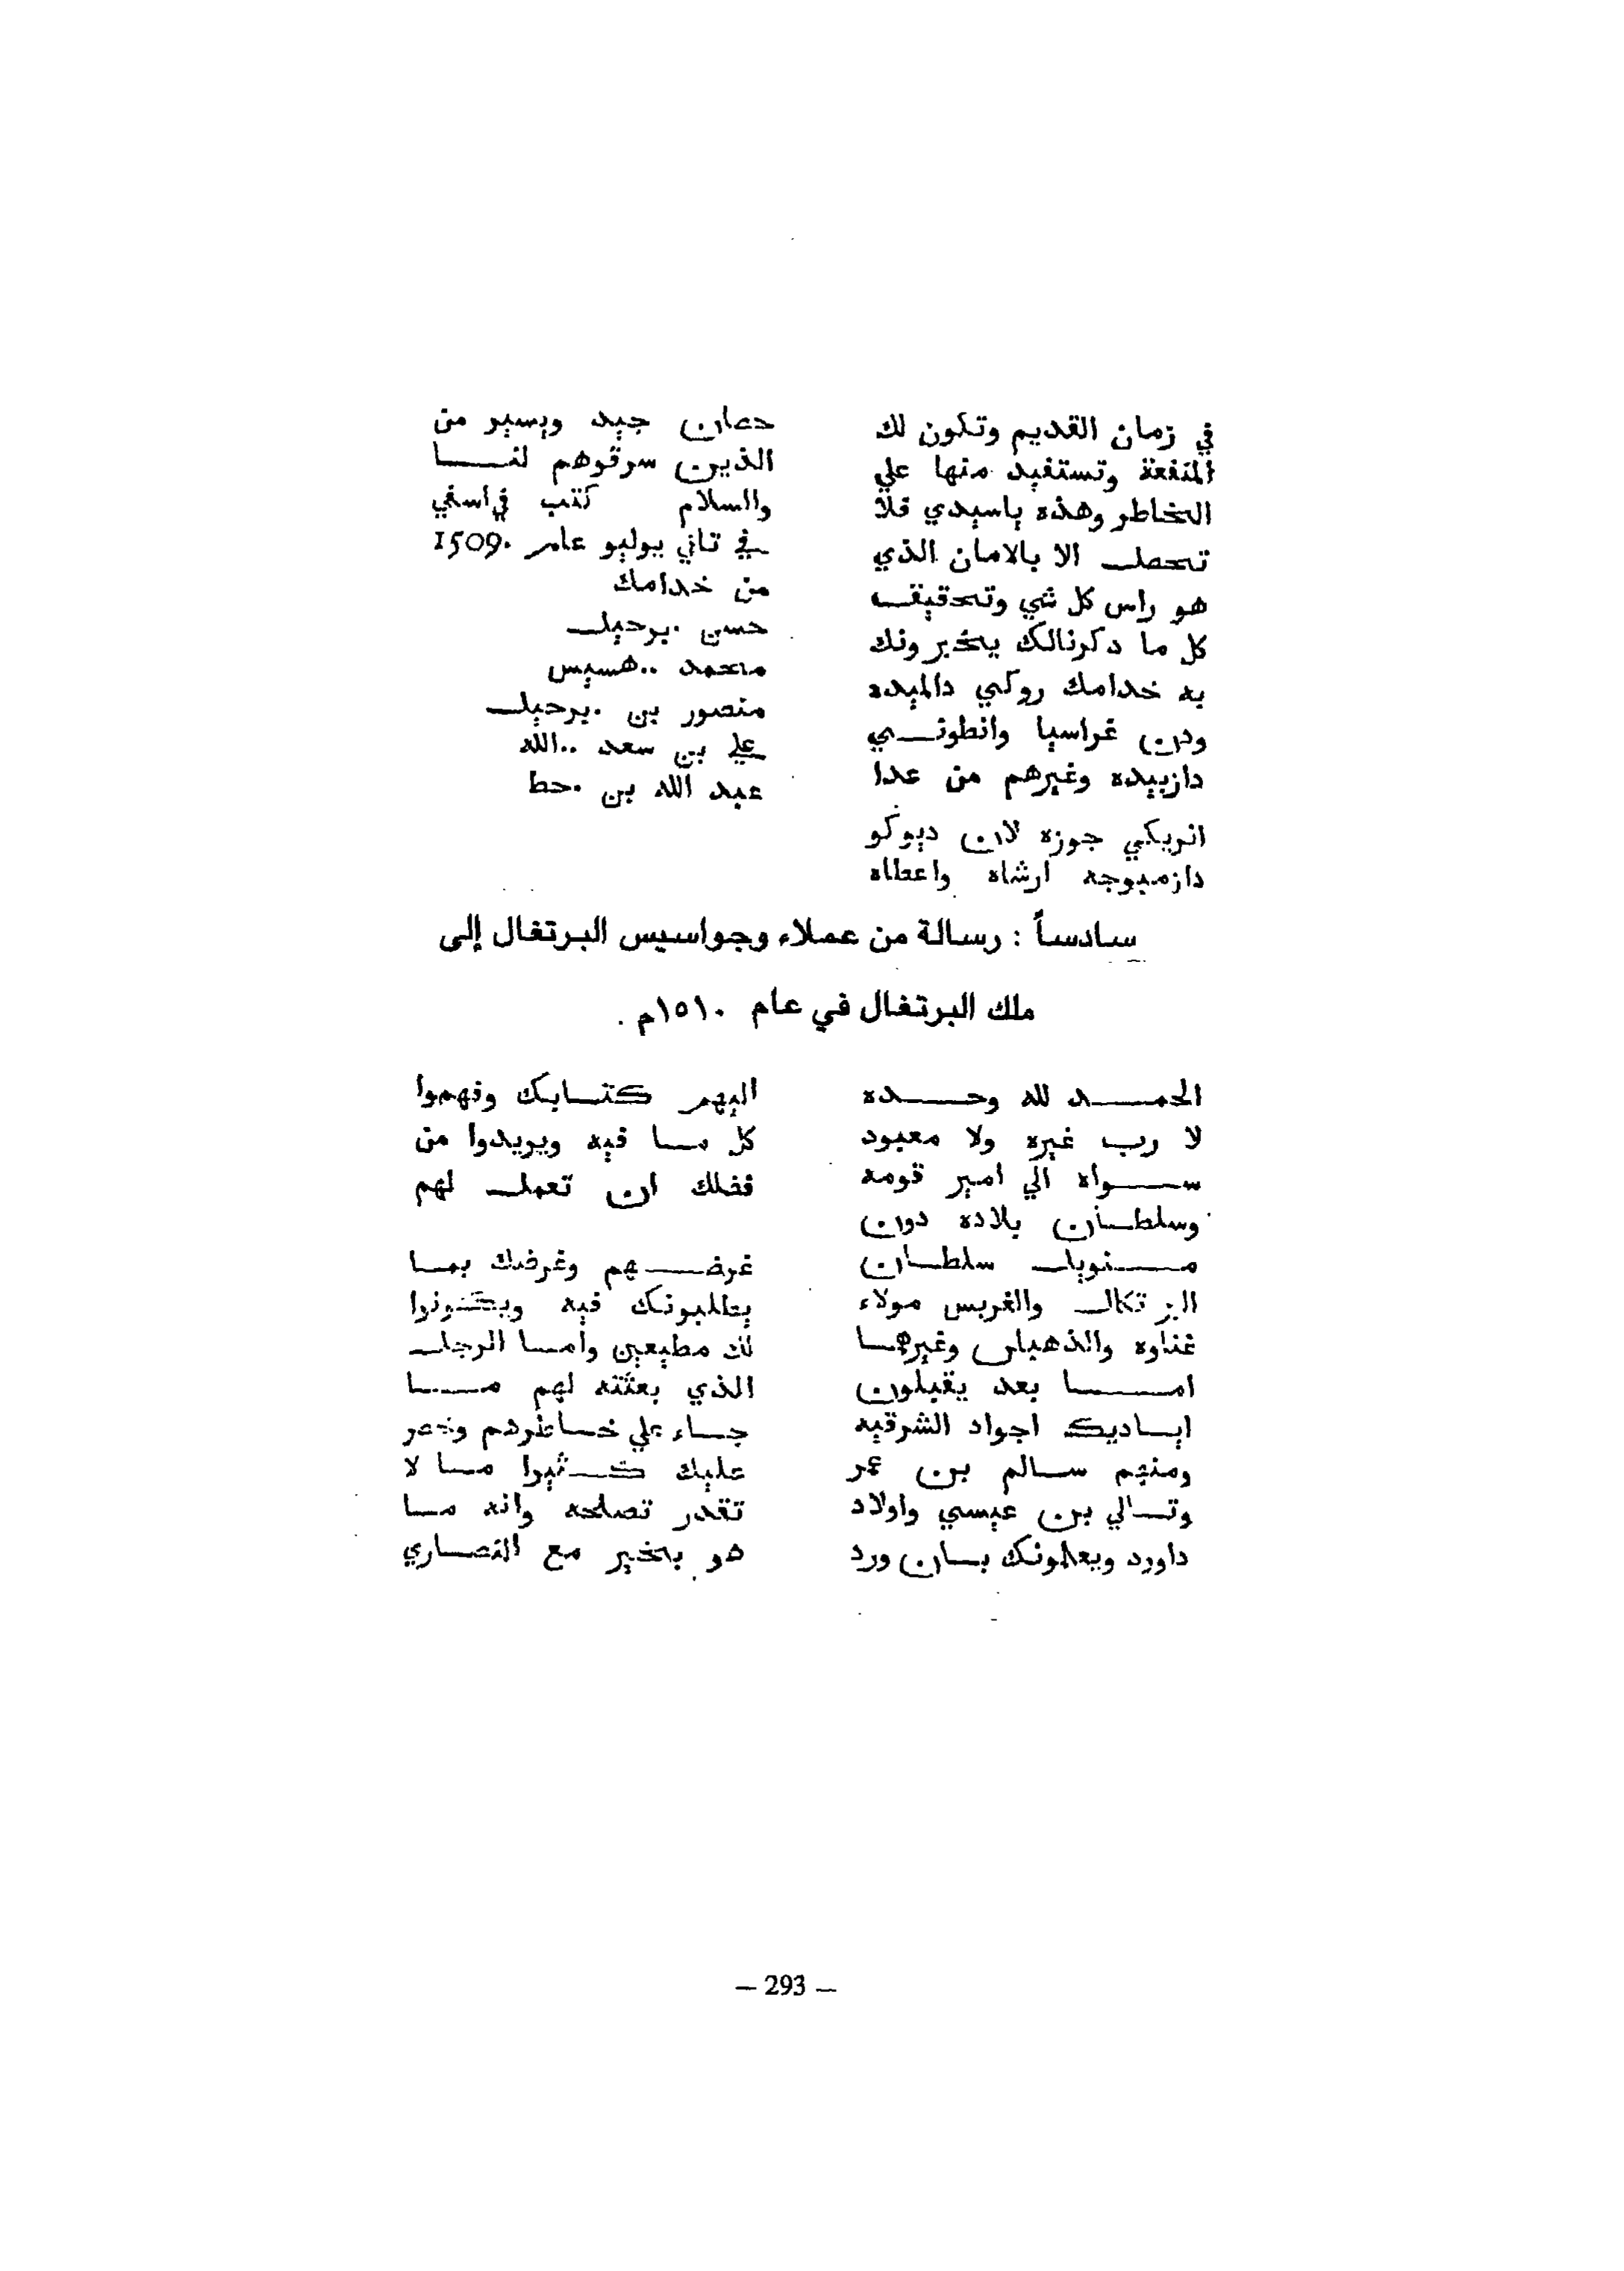 في زمان القديم وتكون لك
المنفعة وتستفيد منها علي
الخاطر وهذه ياسيدي فلا
تحصل الا بالامان الذي
هو راس كل شي وتحقيق
كل ما دكرنالك يخبرونك
به خدامك روكي دالميده
ودون غراسيا وانطوني
دازبيده وغيرهم من عدا
انريكي جوزه لان ديوكو
دازمبوجه ارشاه واعطاه
حصان جيد ويسير من
الذين سرقوهم لنا
والسلام كتب في اسفي
في تاني يوليو عامر 1509.
من خدامك
حسن .برحيل
محمد ..هسيس
منصور بن .برحيل
علي بن سعد ..الله
عبد الله بن .حط
سادساً : رسالة من عملاء وجواسيس البرتغال إلى
ملك البرتغال في عام ١٥١٠م .
الحمد لله وحده
لا رب غيره ولا معبود
سواه الي امير قومه
وسلطان بلاده دون
منويل سلطان
البرتكال والغربس مولاء
غناوه والذهبان وغيرهما
اما بعد يقبلون
اياديك اجواد الشرقيه
ومنهم سالم بن عمر
وتالي بن عيسي واولاد
داورد ويعلمونك بان ورد
اليهم كتابك وفهموا
كل ما فيه ويريدوا من
فضلك ان تعمل لهم
غرضهم وغرضك بما
يطلبونك فيه ويكونوا
لك مطيعين واما الرجل
الذي بعثته لهم ما
جاء علي خاطرهم وخصر
عليك كثيرا ما لا
تقدر تصلحه وانه ما
هو بخير مع النصاري
— 293 —